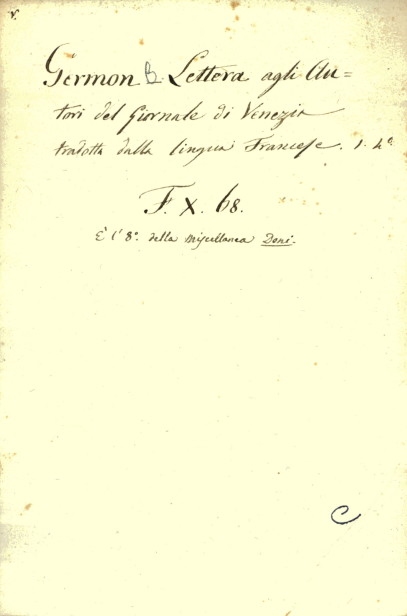 v.
Germon B. Lettera agli Au=
tori del Giornale di Venezia
tradotta dalla lingua Francese. 1. 4º
F. X. 68.
E' l' 8º. della Miscellanea Doni.
C